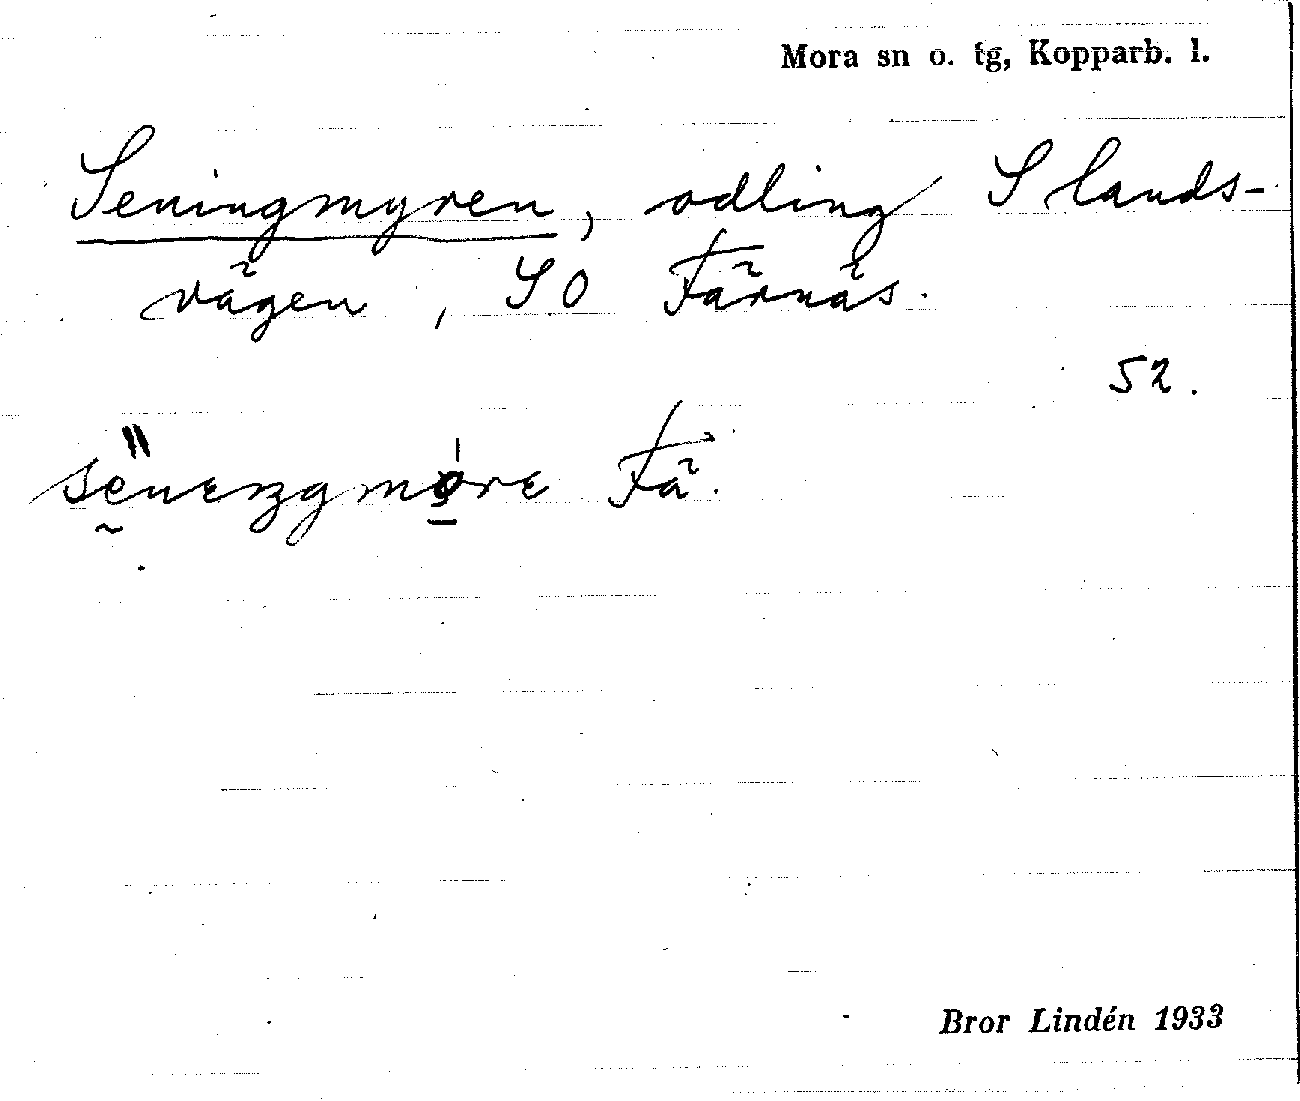 Mora sn o. tg, Kopparb. l.
Seningmyren, odling S lands-
vägen, SO Färnäs.
52.
Fä.
Bror Lindén 1933